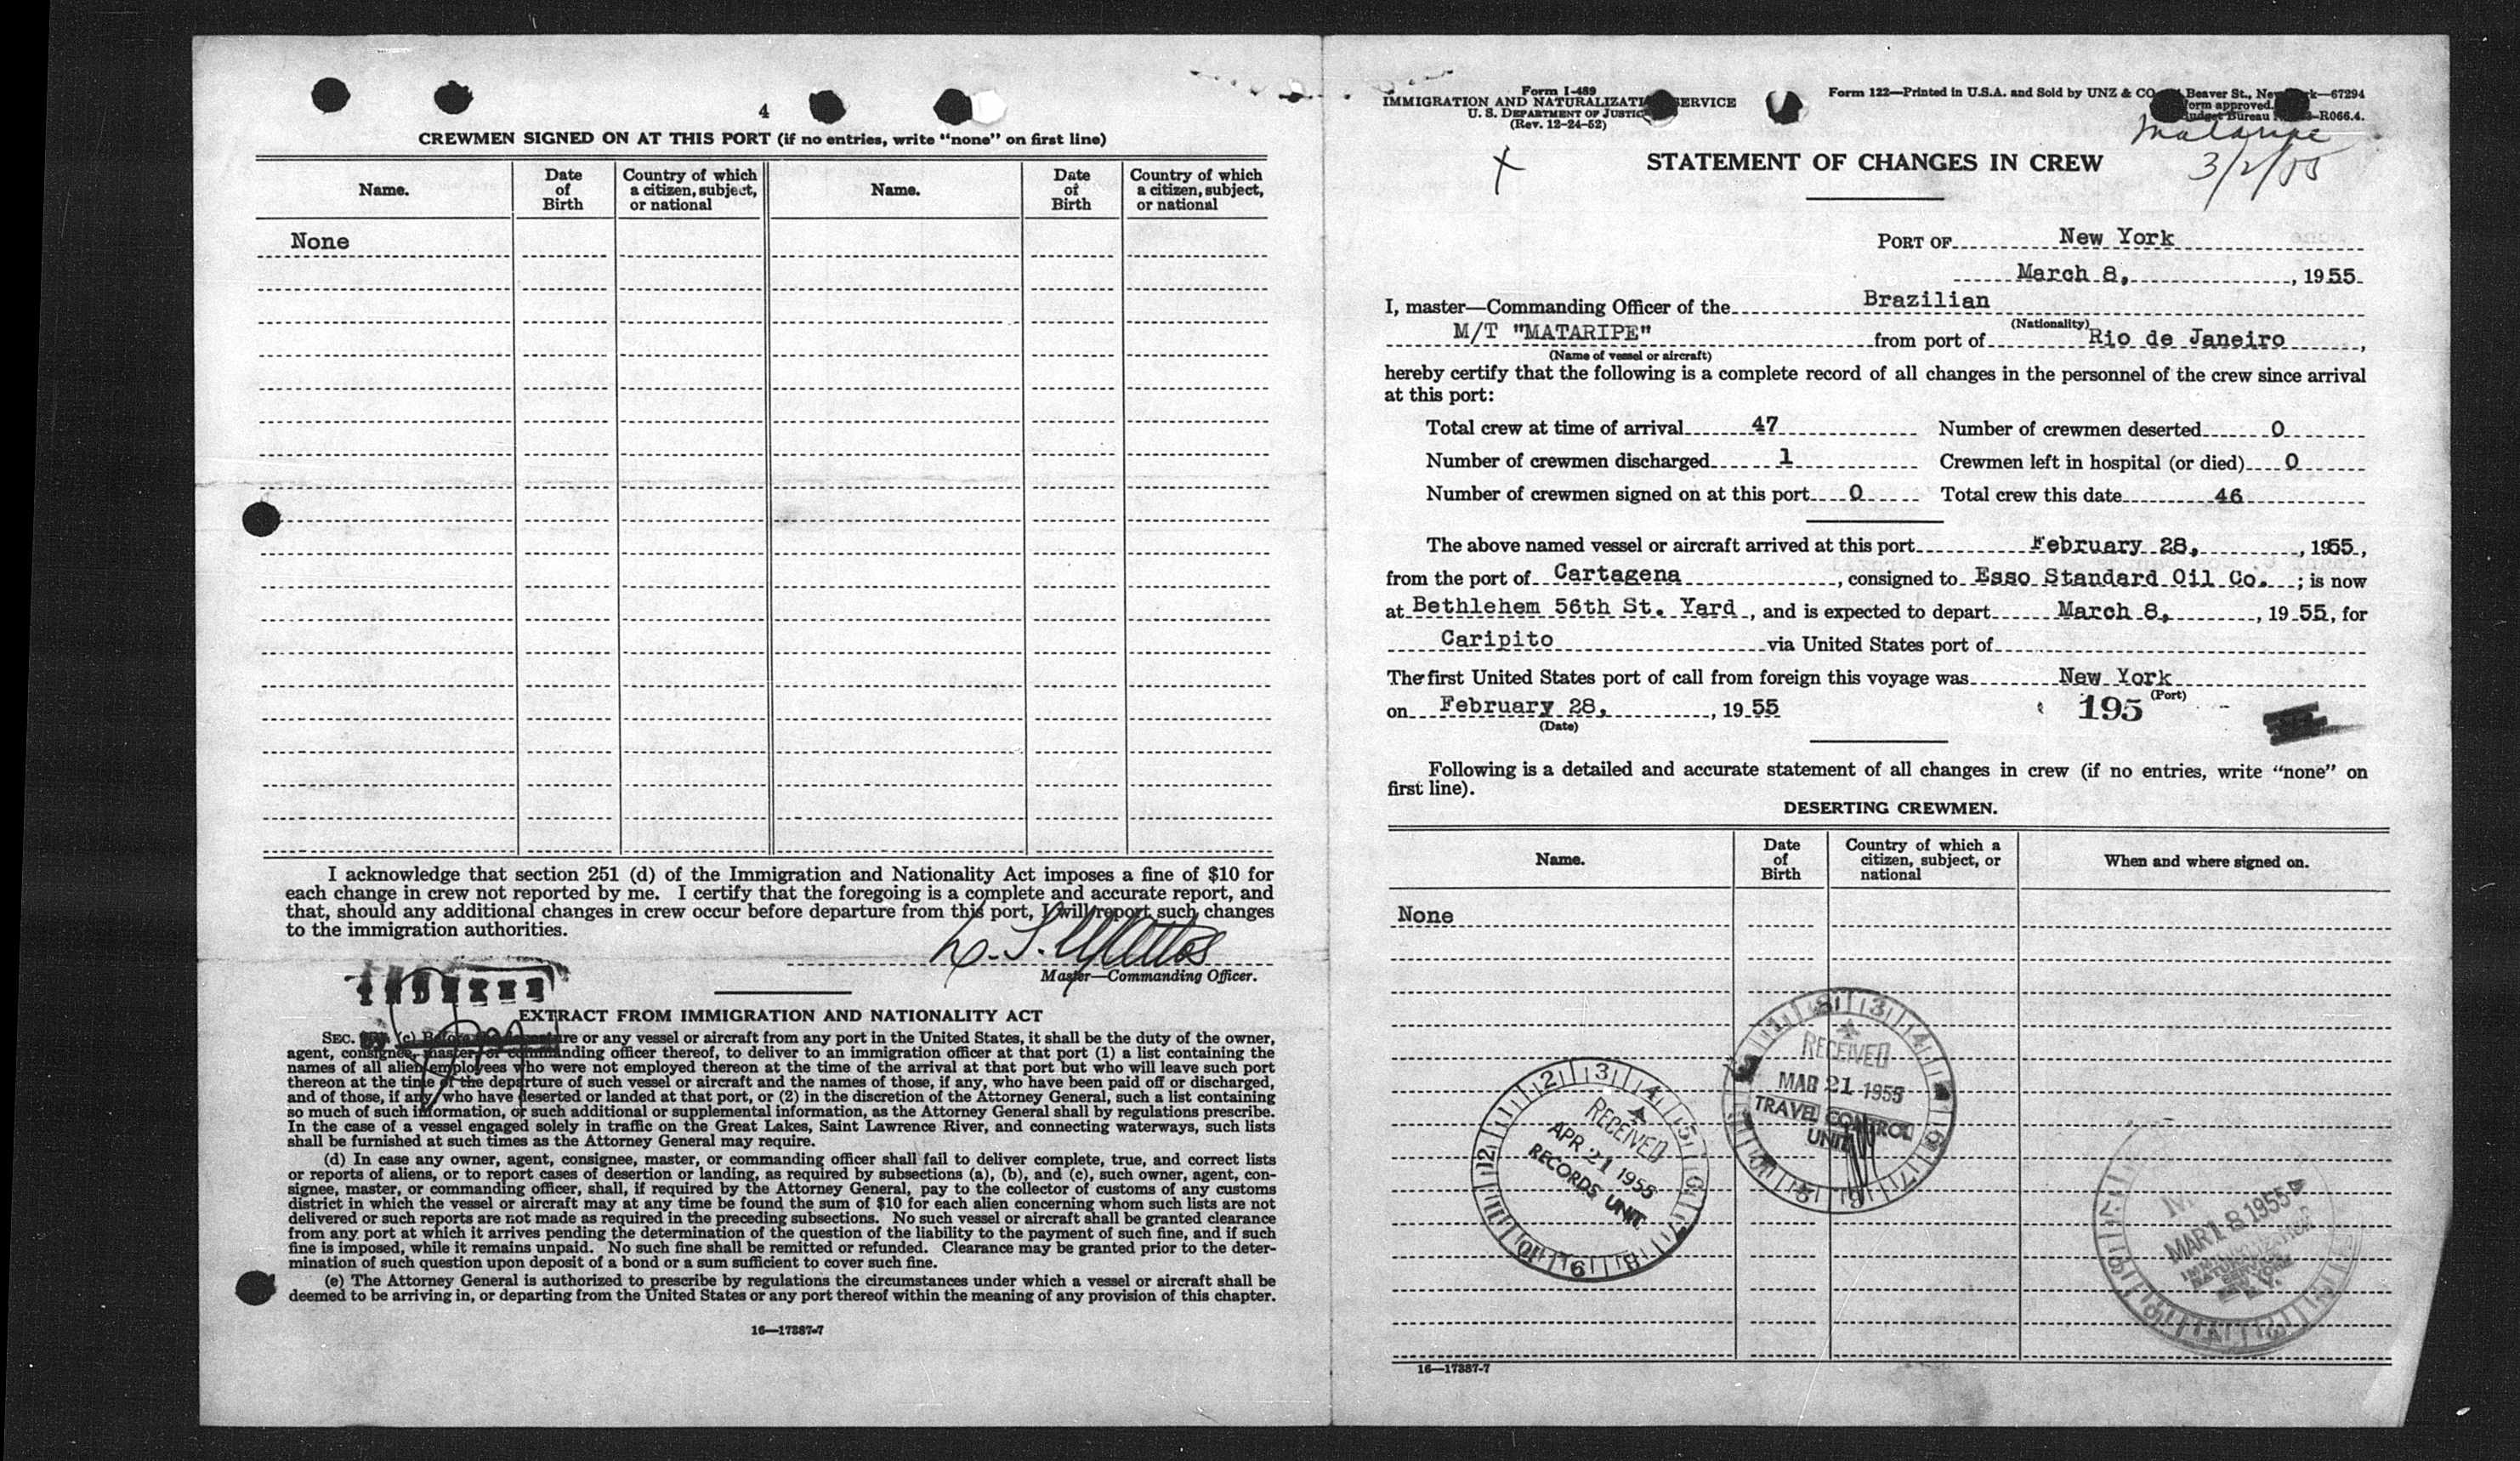 4
CREWMEN SIGNED ON AT THIS PORT (if no entries, write "none" on first line)
Name. Date of Birth Country of which a citizen, subject, or national Name. Date of Birth Country of which a citizen, subject, or national
None
I acknowledge that section 251 (d) of the Immigration and Nationality Act imposes a fine of $10 for
each change in crew not reported by me. I certify that the foregoing is a complete and accurate report, and
that, should any additional changes in crew occur before departure from this port, I will report such changes
to the immigration authorities.
Master—Commanding Officer.
INDEXED
EXTRACT FROM IMMIGRATION AND NATIONALITY ACT
SEC. (c) Before or any vessel or aircraft from any port in the United States, it shall be the duty of the owner,
agent, consignee, master, or commanding officer thereof, to deliver to an immigration officer at that port (1) a list containing the
names of all alien employees who were not employed thereon at the time of the arrival at that port but who will leave such port
thereon at the time of the departure of such vessel or aircraft and the names of those, if any, who have been paid off or discharged,
and of those, if any, who have deserted or landed at that port, or (2) in the discretion of the Attorney General, such a list containing
so much of such information, or such additional or supplemental information, as the Attorney General shall by regulations prescribe.
In the case of a vessel engaged solely in traffic on the Great Lakes, Saint Lawrence River, and connecting waterways, such lists
shall be furnished at such times as the Attorney General may require.
(d) In case any owner, agent, consignee, master, or commanding officer shall fail to deliver complete, true, and correct lists
or reports of aliens, or to report cases of desertion or landing, as required by subsections (a), (b), and (c), such owner, agent, con-
signee, master, or commanding officer, shall, if required by the Attorney General, pay to the collector of customs of any customs
district in which the vessel or aircraft may at any time be found the sum of $10 for each alien concerning whom such lists are not
delivered or such reports are not made as required in the preceding subsections. No such vessel or aircraft shall be granted clearance
from any port at which it arrives pending the determination of the question of the liability to the payment of such fine, and if such
fine is imposed, while it remains unpaid. No such fine shall be remitted or refunded. Clearance may be granted prior to the deter-
mination of such question upon deposit of a bond or a sum sufficient to cover such fine.
(e) The Attorney General is authorized to prescribe by regulations the circumstances under which a vessel or aircraft shall be
deemed to be arriving in, or departing from the United States or any port thereof within the meaning of any provision of this chapter.
16—17887-7
Form I-489
IMMIGRATION AND NATURALIZATION SERVICE
U. S. DEPARTMENT OF JUSTICE
(Rev. 12-24-52)
Form 122—Printed in U.S.A. and Sold by UNZ & CO. Beaver St., New York—67294
Form approved.
Budget Bureau R066.4.
Mataripe
3/2/55
STATEMENT OF CHANGES IN CREW
PORT OF New York
March 8, , 1955
I, master—Commanding Officer of the Brazilian
(Nationality)
M/T "MATARIPE" from port of Rio de Janeiro ,
(Name of vessel or aircraft)
hereby certify that the following is a complete record of all changes in the personnel of the crew since arrival
at this port:
Total crew at time of arrival 47 Number of crewmen deserted 0
Number of crewmen discharged 1 Crewmen left in hospital (or died) 0
Number of crewmen signed on at this port 0 Total crew this date 46
The above named vessel or aircraft arrived at this port February 28, , 1955 ,
from the port of Cartagena , consigned to Esso Standard Oil Co. ; is now
at Bethlehem 56th St. Yard , and is expected to depart March 8, , 19 55 , for
Caripito via United States port of
The first United States port of call from foreign this voyage was New York
(Port)
on February 28, , 19 55
(Date)
195
Following is a detailed and accurate statement of all changes in crew (if no entries, write "none" on
first line).
DESERTING CREWMEN.
Name. Date of Birth Country of which a citizen, subject, or national When and where signed on.
None
RECEIVED
MAR 21 1955
TRAVEL CONTROL
UNIT
RECEIVED
APR 21 1955
RECORDS UNIT
MAR 18 1955
16—17887-7